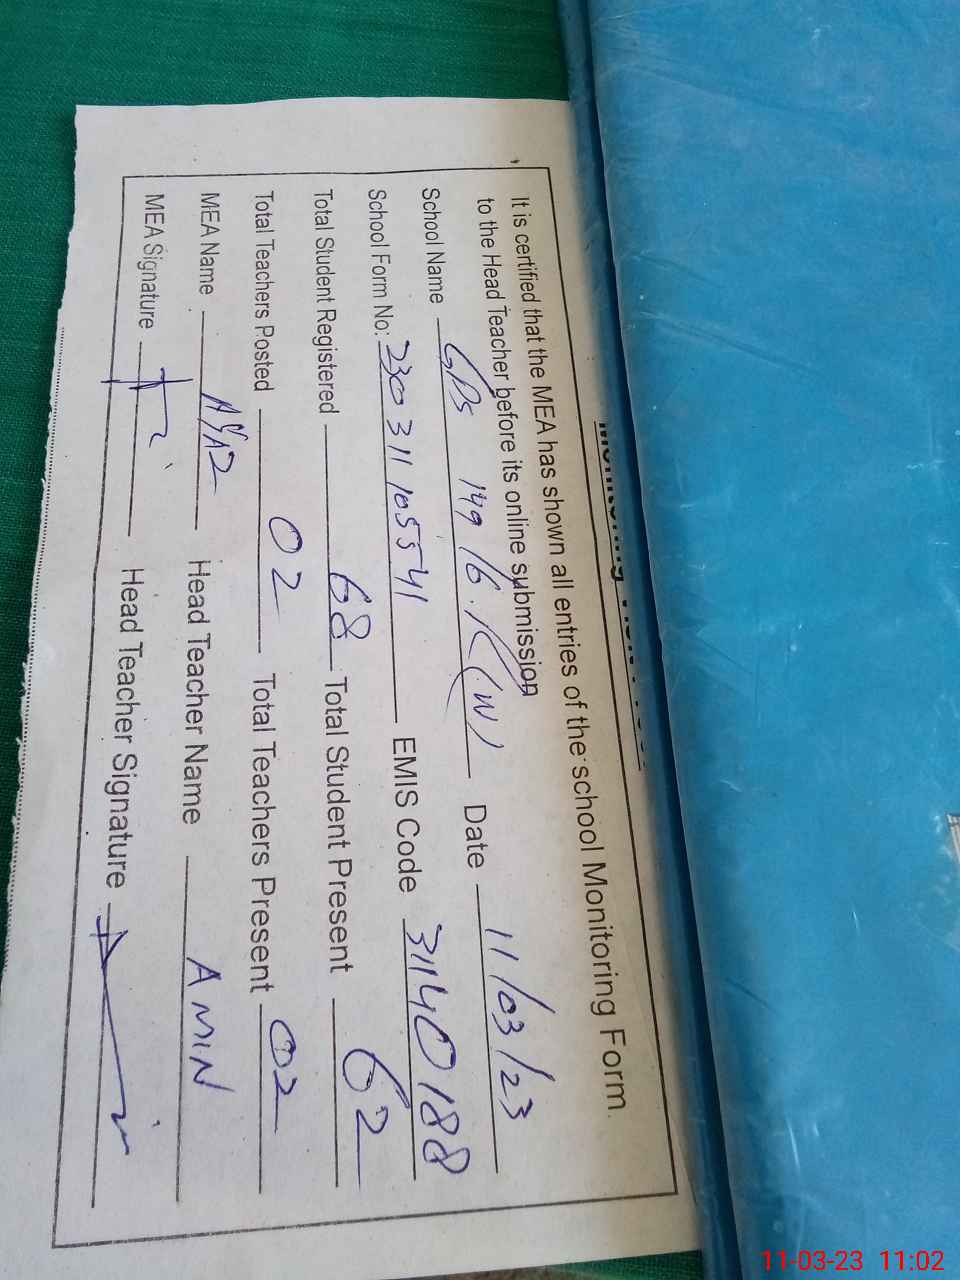 It is certified that the MEA has shown all entries of the school Monitoring Form.
to the Head Teacher before its online submission
School Name GPS 149/6.R (W) Date 11/03/23
School Form No: 330 311 105541 EMIS Code 31140188
Total Student Registered 68 Total Student Present 62
Total Teachers Posted 02 Total Teachers Present 02
MEA Name Head Teacher Name AMIN
MEA Signature Head Teacher Signature
11-03-23 11:02